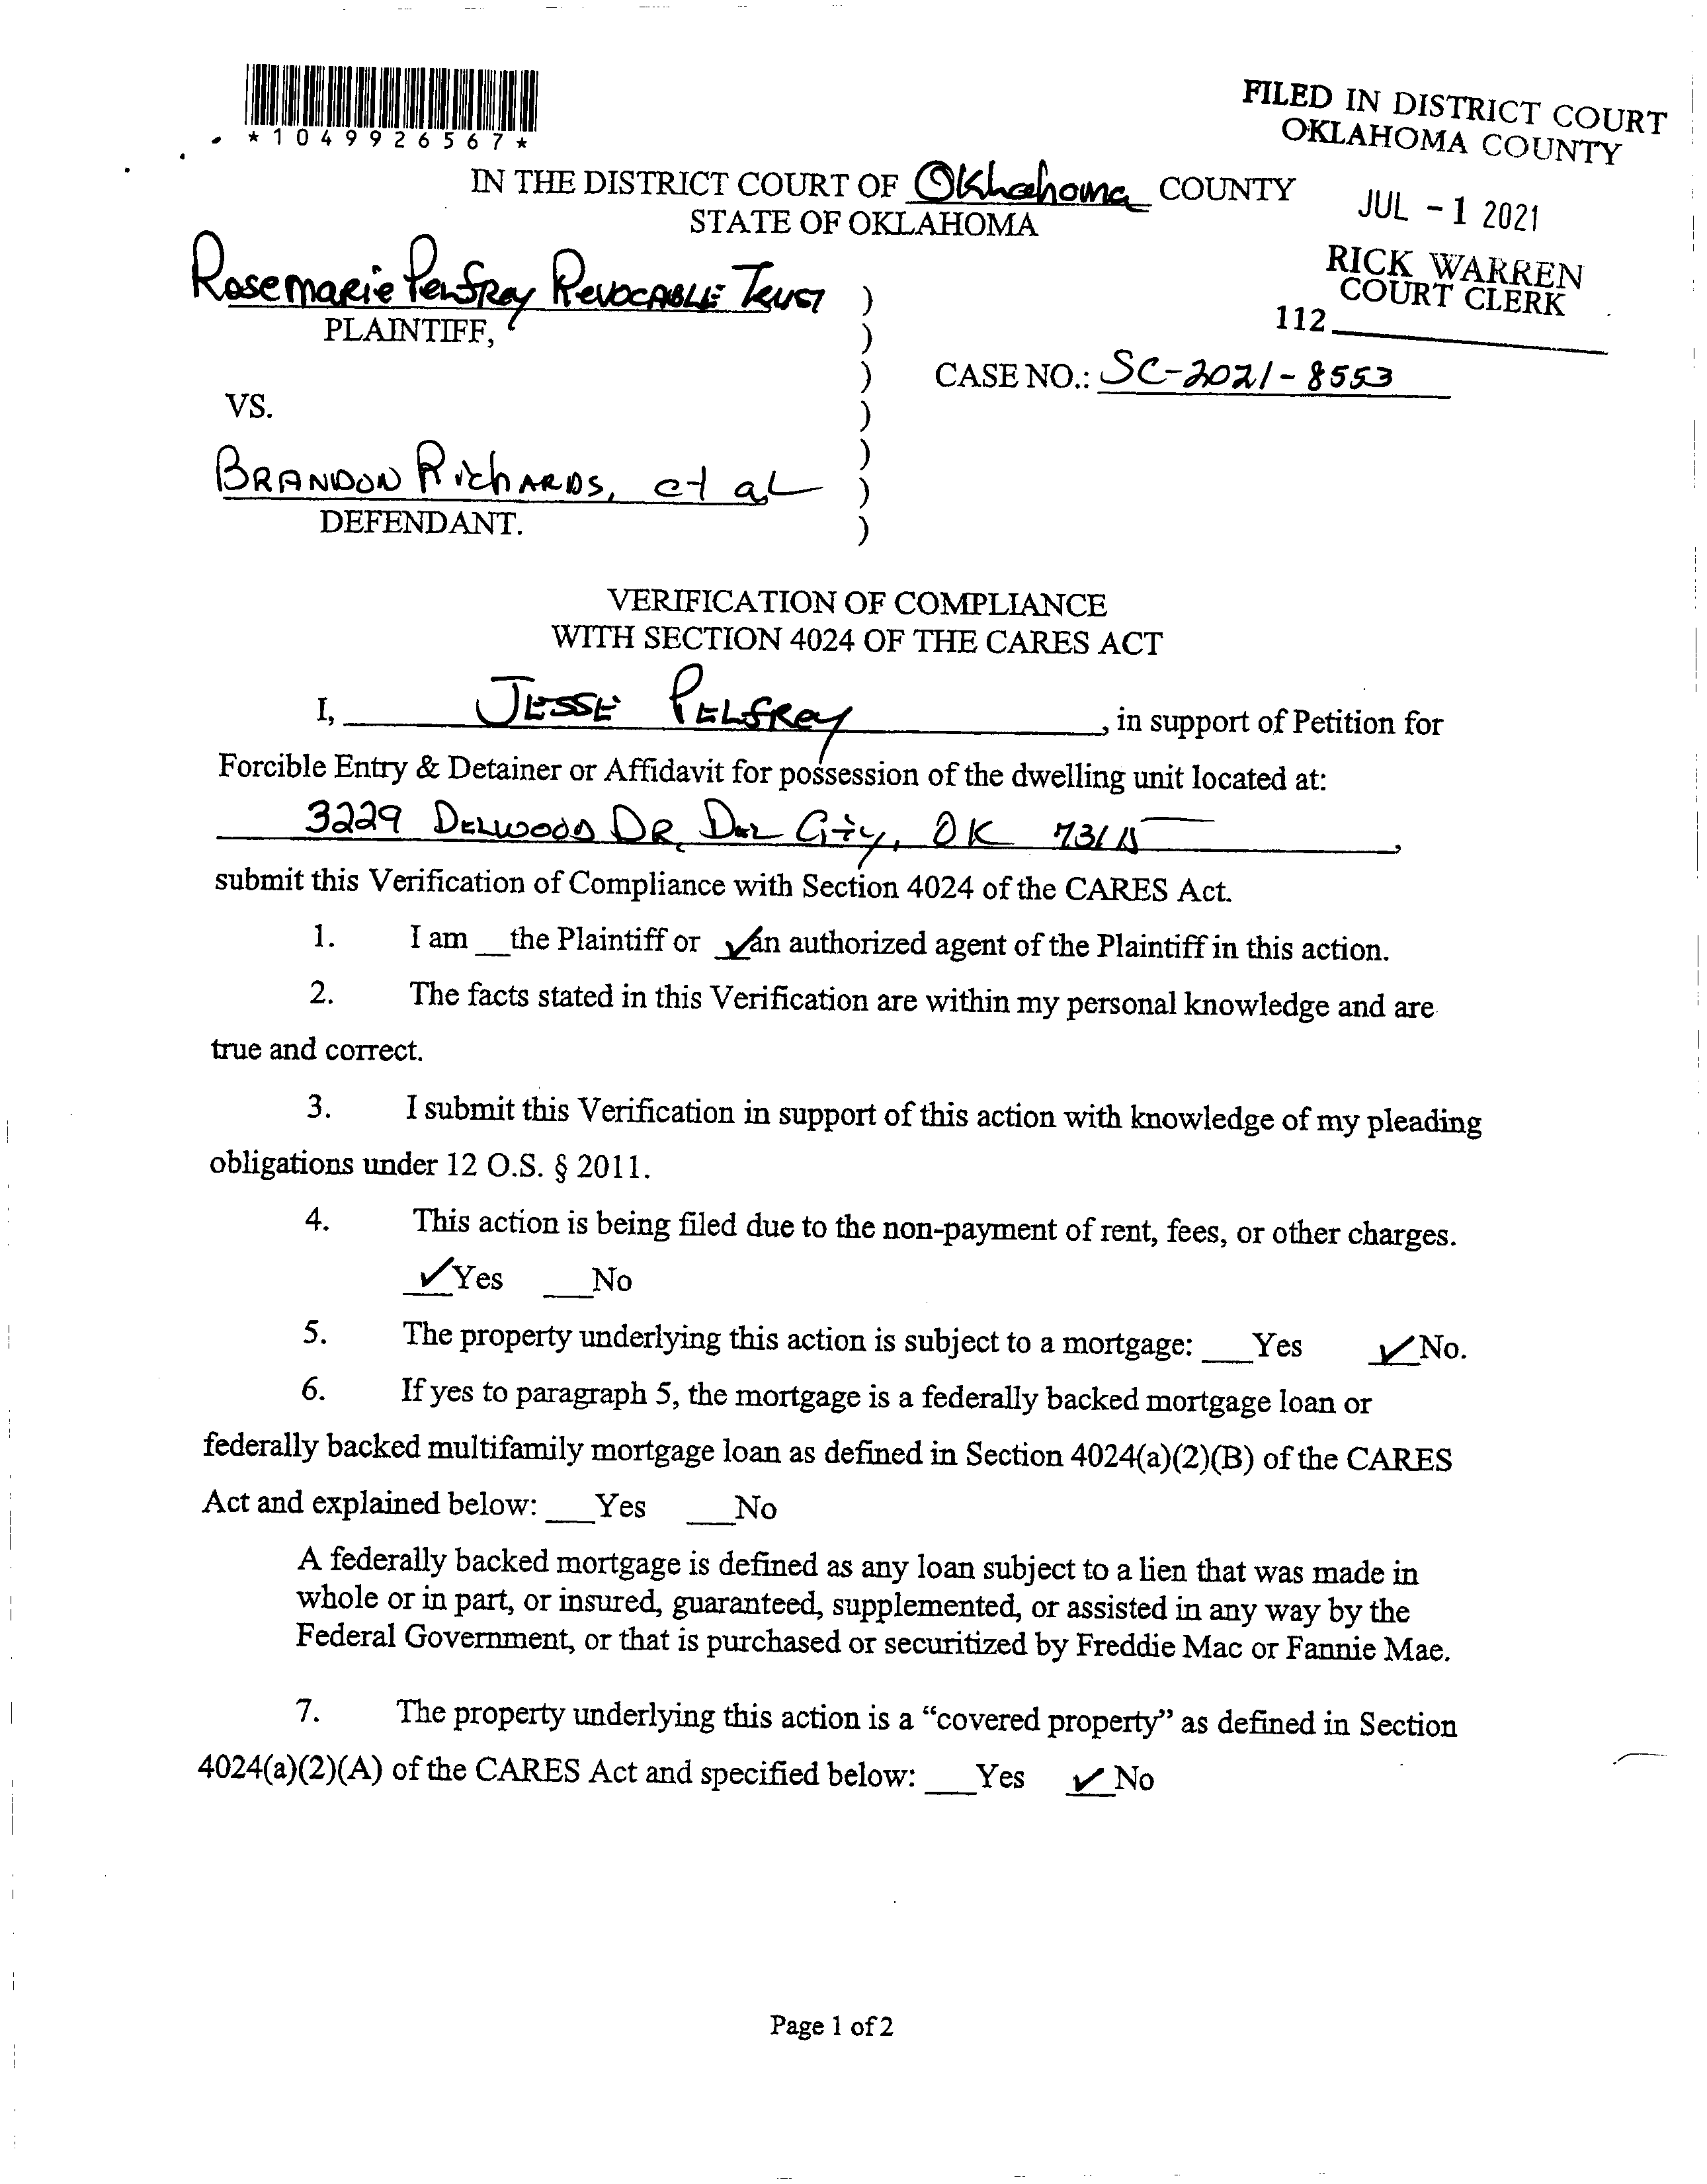 *1049926567*
FILED IN DISTRICT COURT
OKLAHOMA COUNTY
JUL - 1 2021
RICK WARREN
COURT CLERK
112
IN THE DISTRICT COURT OF Oklahoma COUNTY
STATE OF OKLAHOMA
Rosemarie Pelfrey Revocable Trust )
PLAINTIFF, )
) CASE NO.: SC-2021-8553
VS. )
)
BRANDON RichARDS, et al )
DEFENDANT. )
VERIFICATION OF COMPLIANCE
WITH SECTION 4024 OF THE CARES ACT
I, JESSE PELFREY, in support of Petition for
Forcible Entry & Detainer or Affidavit for possession of the dwelling unit located at:
3229 DELWOOD DR, DEL City, OK 73115,
submit this Verification of Compliance with Section 4024 of the CARES Act.
1. I am __the Plaintiff or ✓an authorized agent of the Plaintiff in this action.
2. The facts stated in this Verification are within my personal knowledge and are
true and correct.
3. I submit this Verification in support of this action with knowledge of my pleading
obligations under 12 O.S. § 2011.
4. This action is being filed due to the non-payment of rent, fees, or other charges.
✓Yes ___No
5. The property underlying this action is subject to a mortgage: ___Yes ✓No.
6. If yes to paragraph 5, the mortgage is a federally backed mortgage loan or
federally backed multifamily mortgage loan as defined in Section 4024(a)(2)(B) of the CARES
Act and explained below: ___Yes ___No
A federally backed mortgage is defined as any loan subject to a lien that was made in
whole or in part, or insured, guaranteed, supplemented, or assisted in any way by the
Federal Government, or that is purchased or securitized by Freddie Mac or Fannie Mae.
7. The property underlying this action is a “covered property” as defined in Section
4024(a)(2)(A) of the CARES Act and specified below: ___Yes ✓No
Page 1 of 2